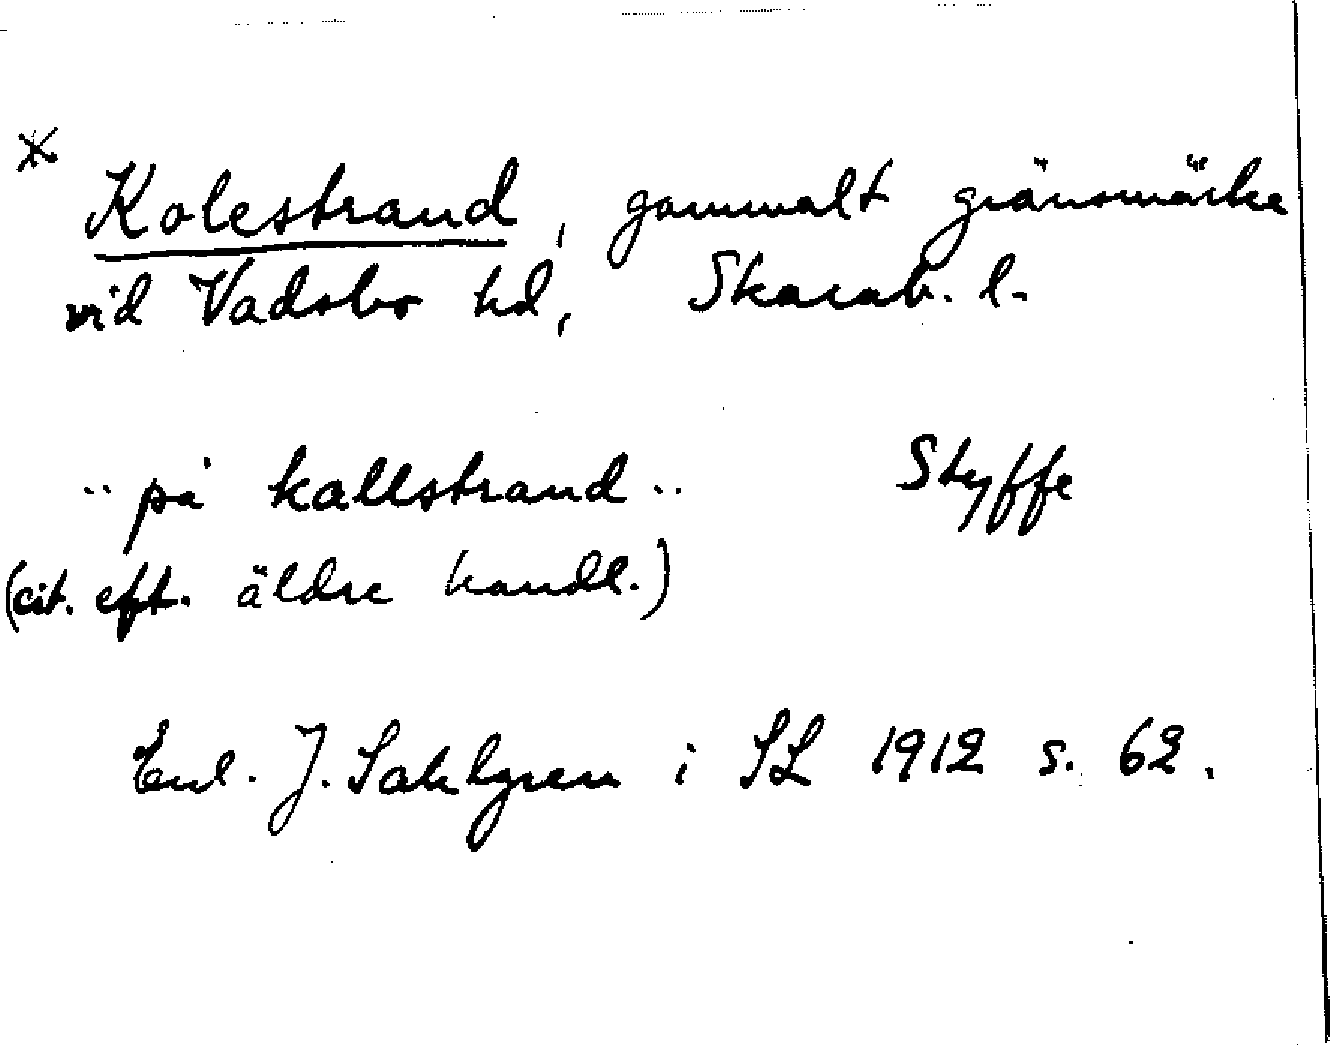 * Kolestrand, gammalt gränsmärke
vid Vadsbo hd, Skarab. l.
.. på kallstrand .. Styffe
(cit. eft. äldre handl.)
Enl. J. Sahlgren i SL 1912 s. 62.